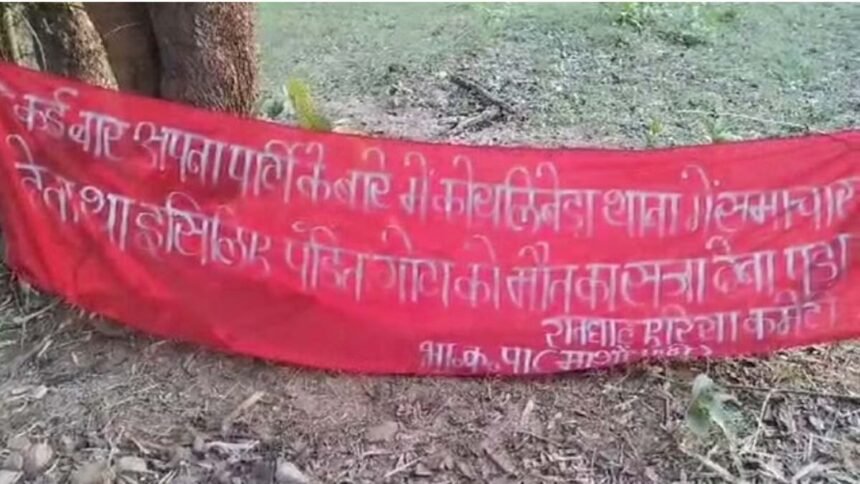 कई बार अपना पार्टि के बारे में कोयलिबेडा थाना में समाचार
देता था इसिलिए पंडित गोटा को मौत का सजा देना पडा
एरिया कमेटी
भा.क.पा